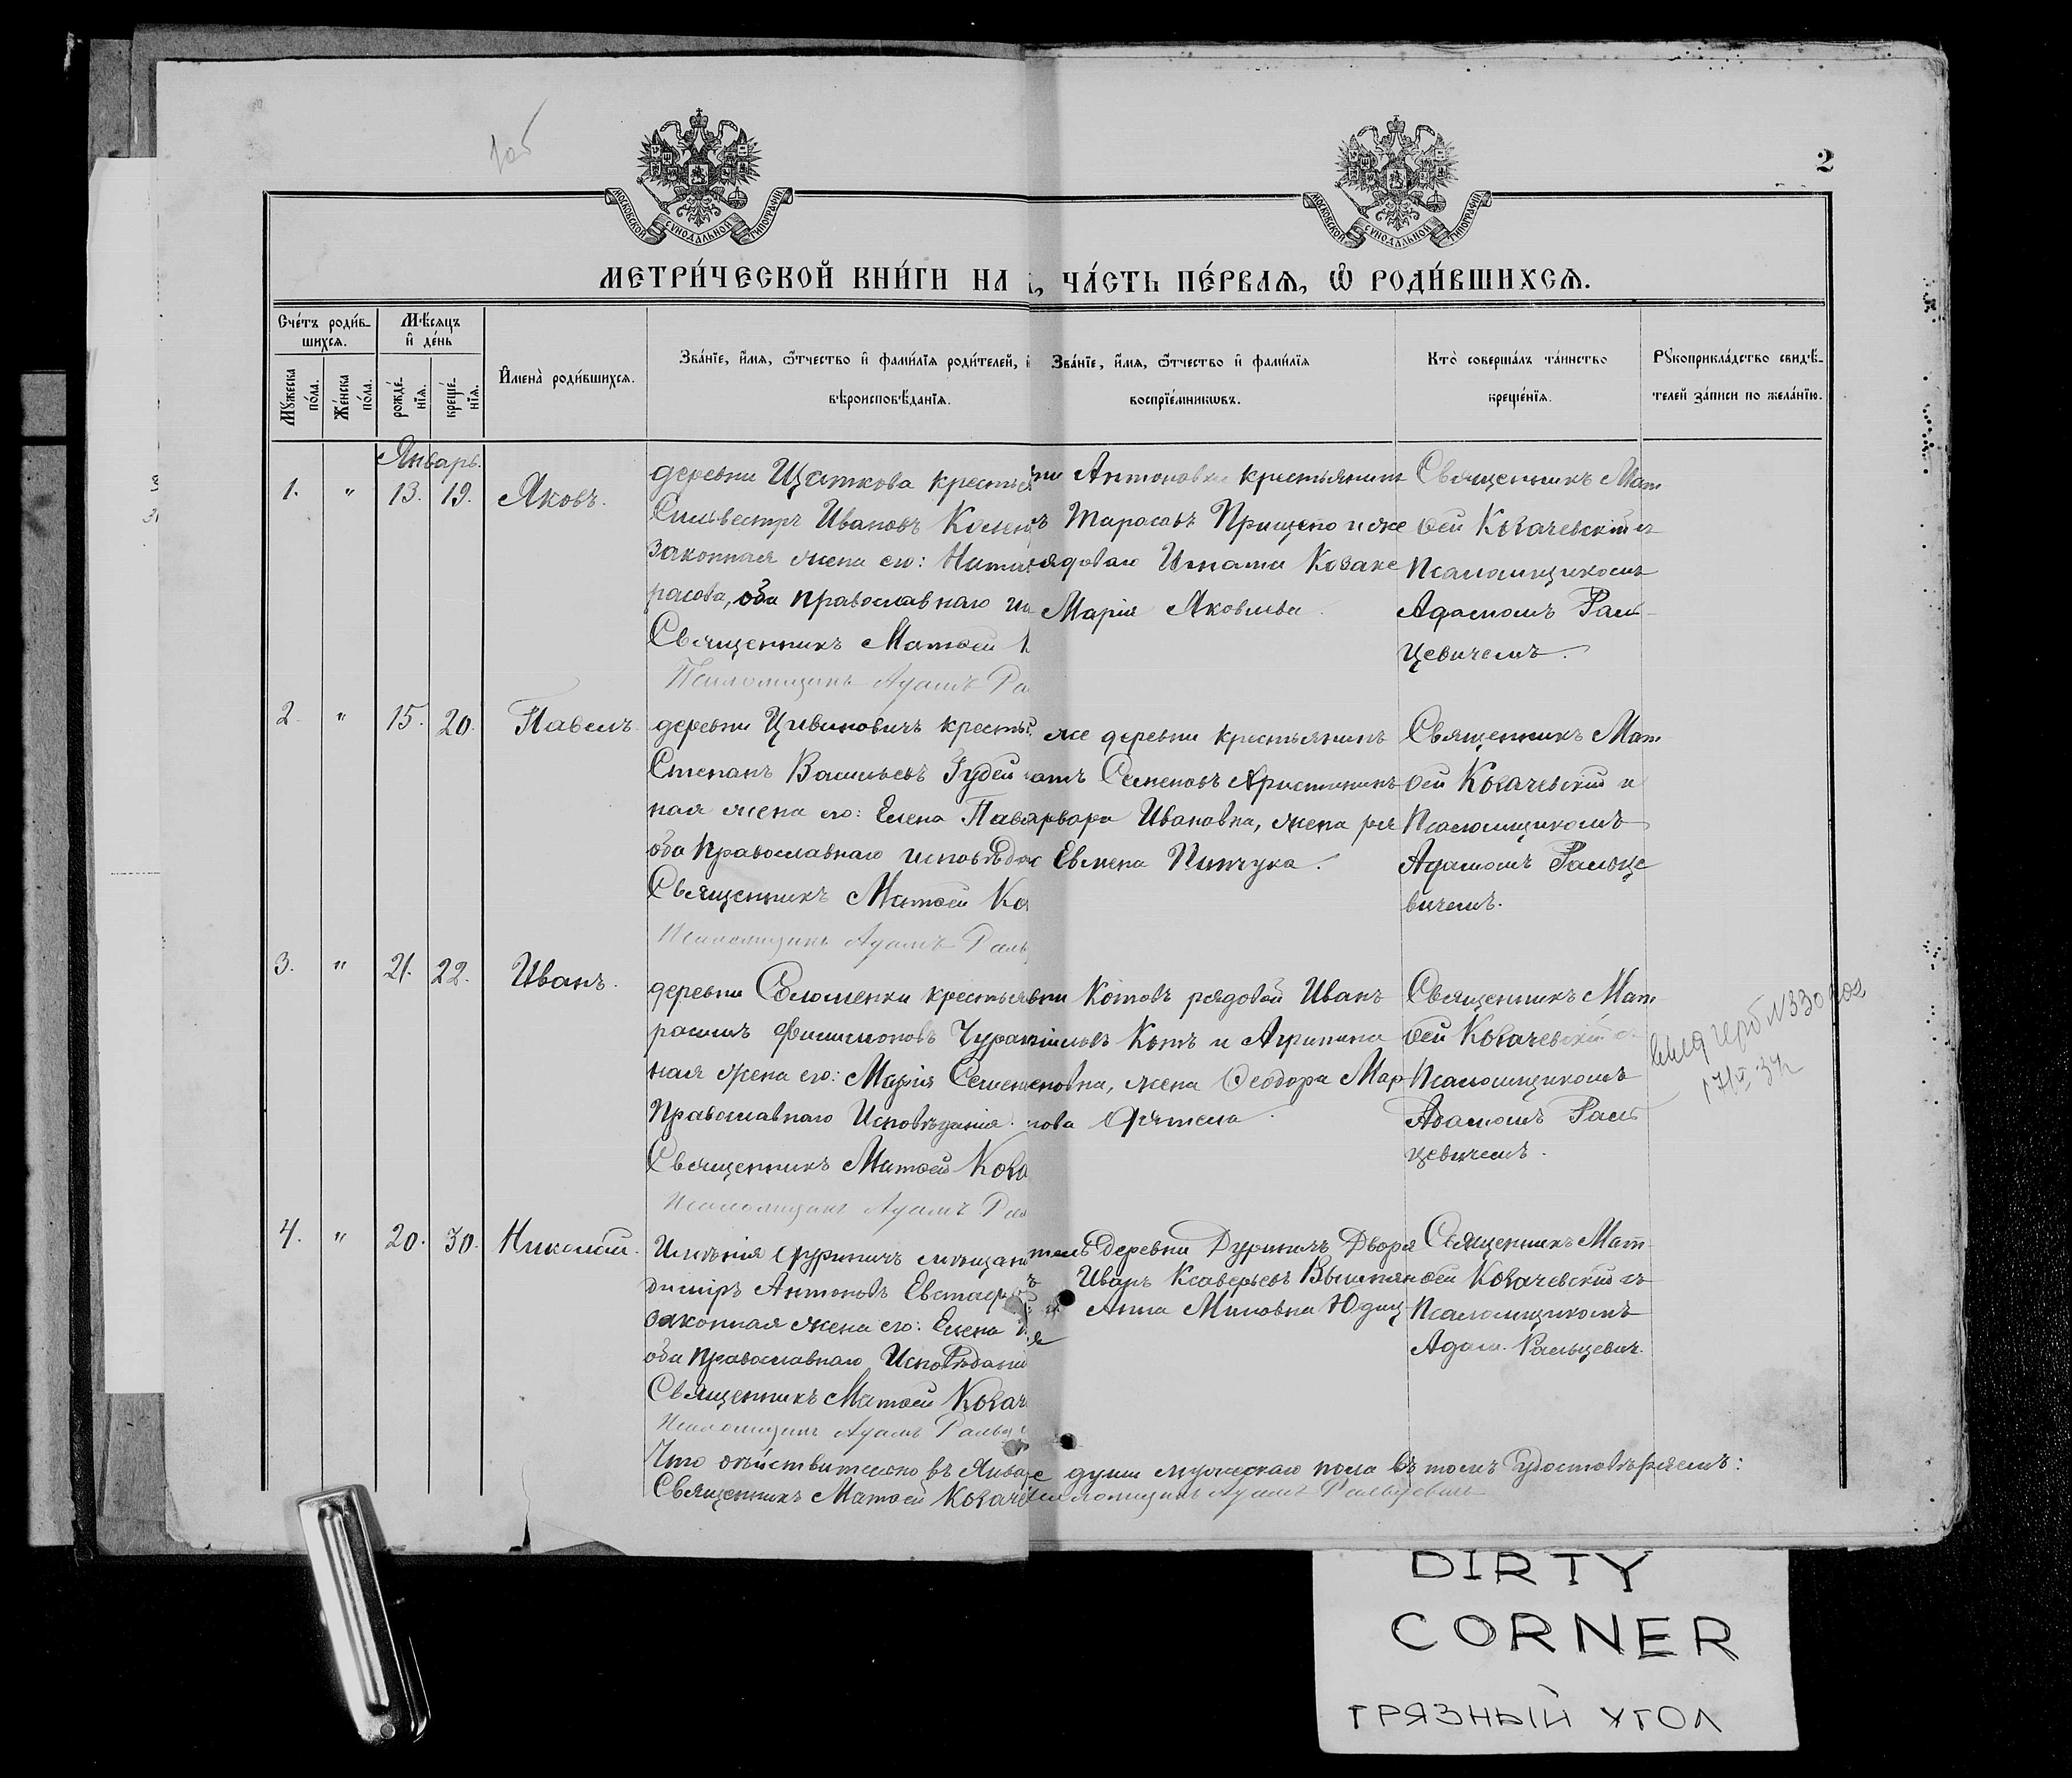 105
МОСКОВСКОЙ СѴНОДАЛЬНОЙ ТИПОГРАФІИ
МОСКОВСКОЙ СѴНОДАЛЬНОЙ ТИПОГРАФІИ
2
МЕТРИ́ЧЕСКОЙ КНИ́ГИ НА
ЧА́СТЬ ПЕ́РВАѦ, Ѽ РОДИ́ВШИХСѦ.
Сче́тъ роди́в-
шихсѧ.
Мꙋ́жеска по́ла.
Же́нска по́ла.
Мѣ́сѧцъ
и҆ де́нь
рожде́-нїѧ.
креще́-нїѧ.
И҆мена̀ роди́вшихсѧ.
Зва́нїе, и҆́мѧ, ѻ҆́тчество и҆ фами́лїѧ роди́телей,
вѣроисповѣ́данїѧ.
Зва́нїе, и҆́мѧ, ѻ҆́тчество и҆ фами́лїѧ
воспрїе́мникѡвъ.
Кто̀ соверша́лъ та́инство
креще́нїѧ.
Рꙋкоприкла́дство свидѣ́-
телей за́писи по жела́нїю.
Январь.
1. " 13. 19. Яковъ.
деревни Щиткова крестья
Сильвестръ Ивановъ
законная жена его:
расова, оба православнаго
Священникъ Матѳей
Псаломщикъ Адамъ Ра
Антоновки крестьянинъ
Тарасовъ Прищепо и же
Игната
Марія Яковлева.
Священникъ Мат
ѳей Ковачевскій съ
Псаломщикомъ
Адамомъ Раль
цевичемъ.
2. " 15. 20. Павелъ.
деревни Цивиновичъ кресть
Степанъ Васильевъ
ная жена его: Елена Пав
оба православнаго исповѣда
Священникъ Матѳей Ко
Псаломщикъ Адамъ Раль
же деревни крестьянинъ
Семеновъ
рвара Ивановна, жена ря
Евмена Пинчука.
Священникъ Мат
ѳей Ковачевскій и
Псаломщикомъ
Адамомъ Ральце
вичемъ.
3. " 21. 22. Иванъ.
деревни Соломенки крестья
расимъ Филимоновъ
ная жена его: Марія Семен
Православнаго Исповѣданія.
Священникъ Матѳей Кова
Псаломщикъ Адамъ Рал
вни Котовъ рядовой Иванъ
Котъ и Агрипина
еновна, жена Ѳеодора Мар
нова
Священникъ Мат
ѳей Ковачевскій с
Псаломщикомъ
Адамомъ Раль
цевичемъ.
4. " 20. 30. Николай.
Имѣнія Дуриничъ мѣщани
димiръ Антоновъ Евстаф
законная жена его: Елена
оба православнаго Исповѣдані
Священникъ Матѳей Ковач
Псаломщикъ Адамъ Ральц
деревни Дуриничъ Дворя
Иванъ Ксаверьевъ
Анна Миновна
Священникъ Мат
ѳей Ковачевскій съ
Псаломщикомъ
Адам. Ральцевич.
Что дѣйствительно въ Январ
е души мужескаго пола въ томъ удостовѣряемъ:
Священникъ Матѳей Коваче
Псаломщикъ Адамъ Ральцевичъ
DIRTY
CORNER
ГРЯЗНЫЙ УГОЛ